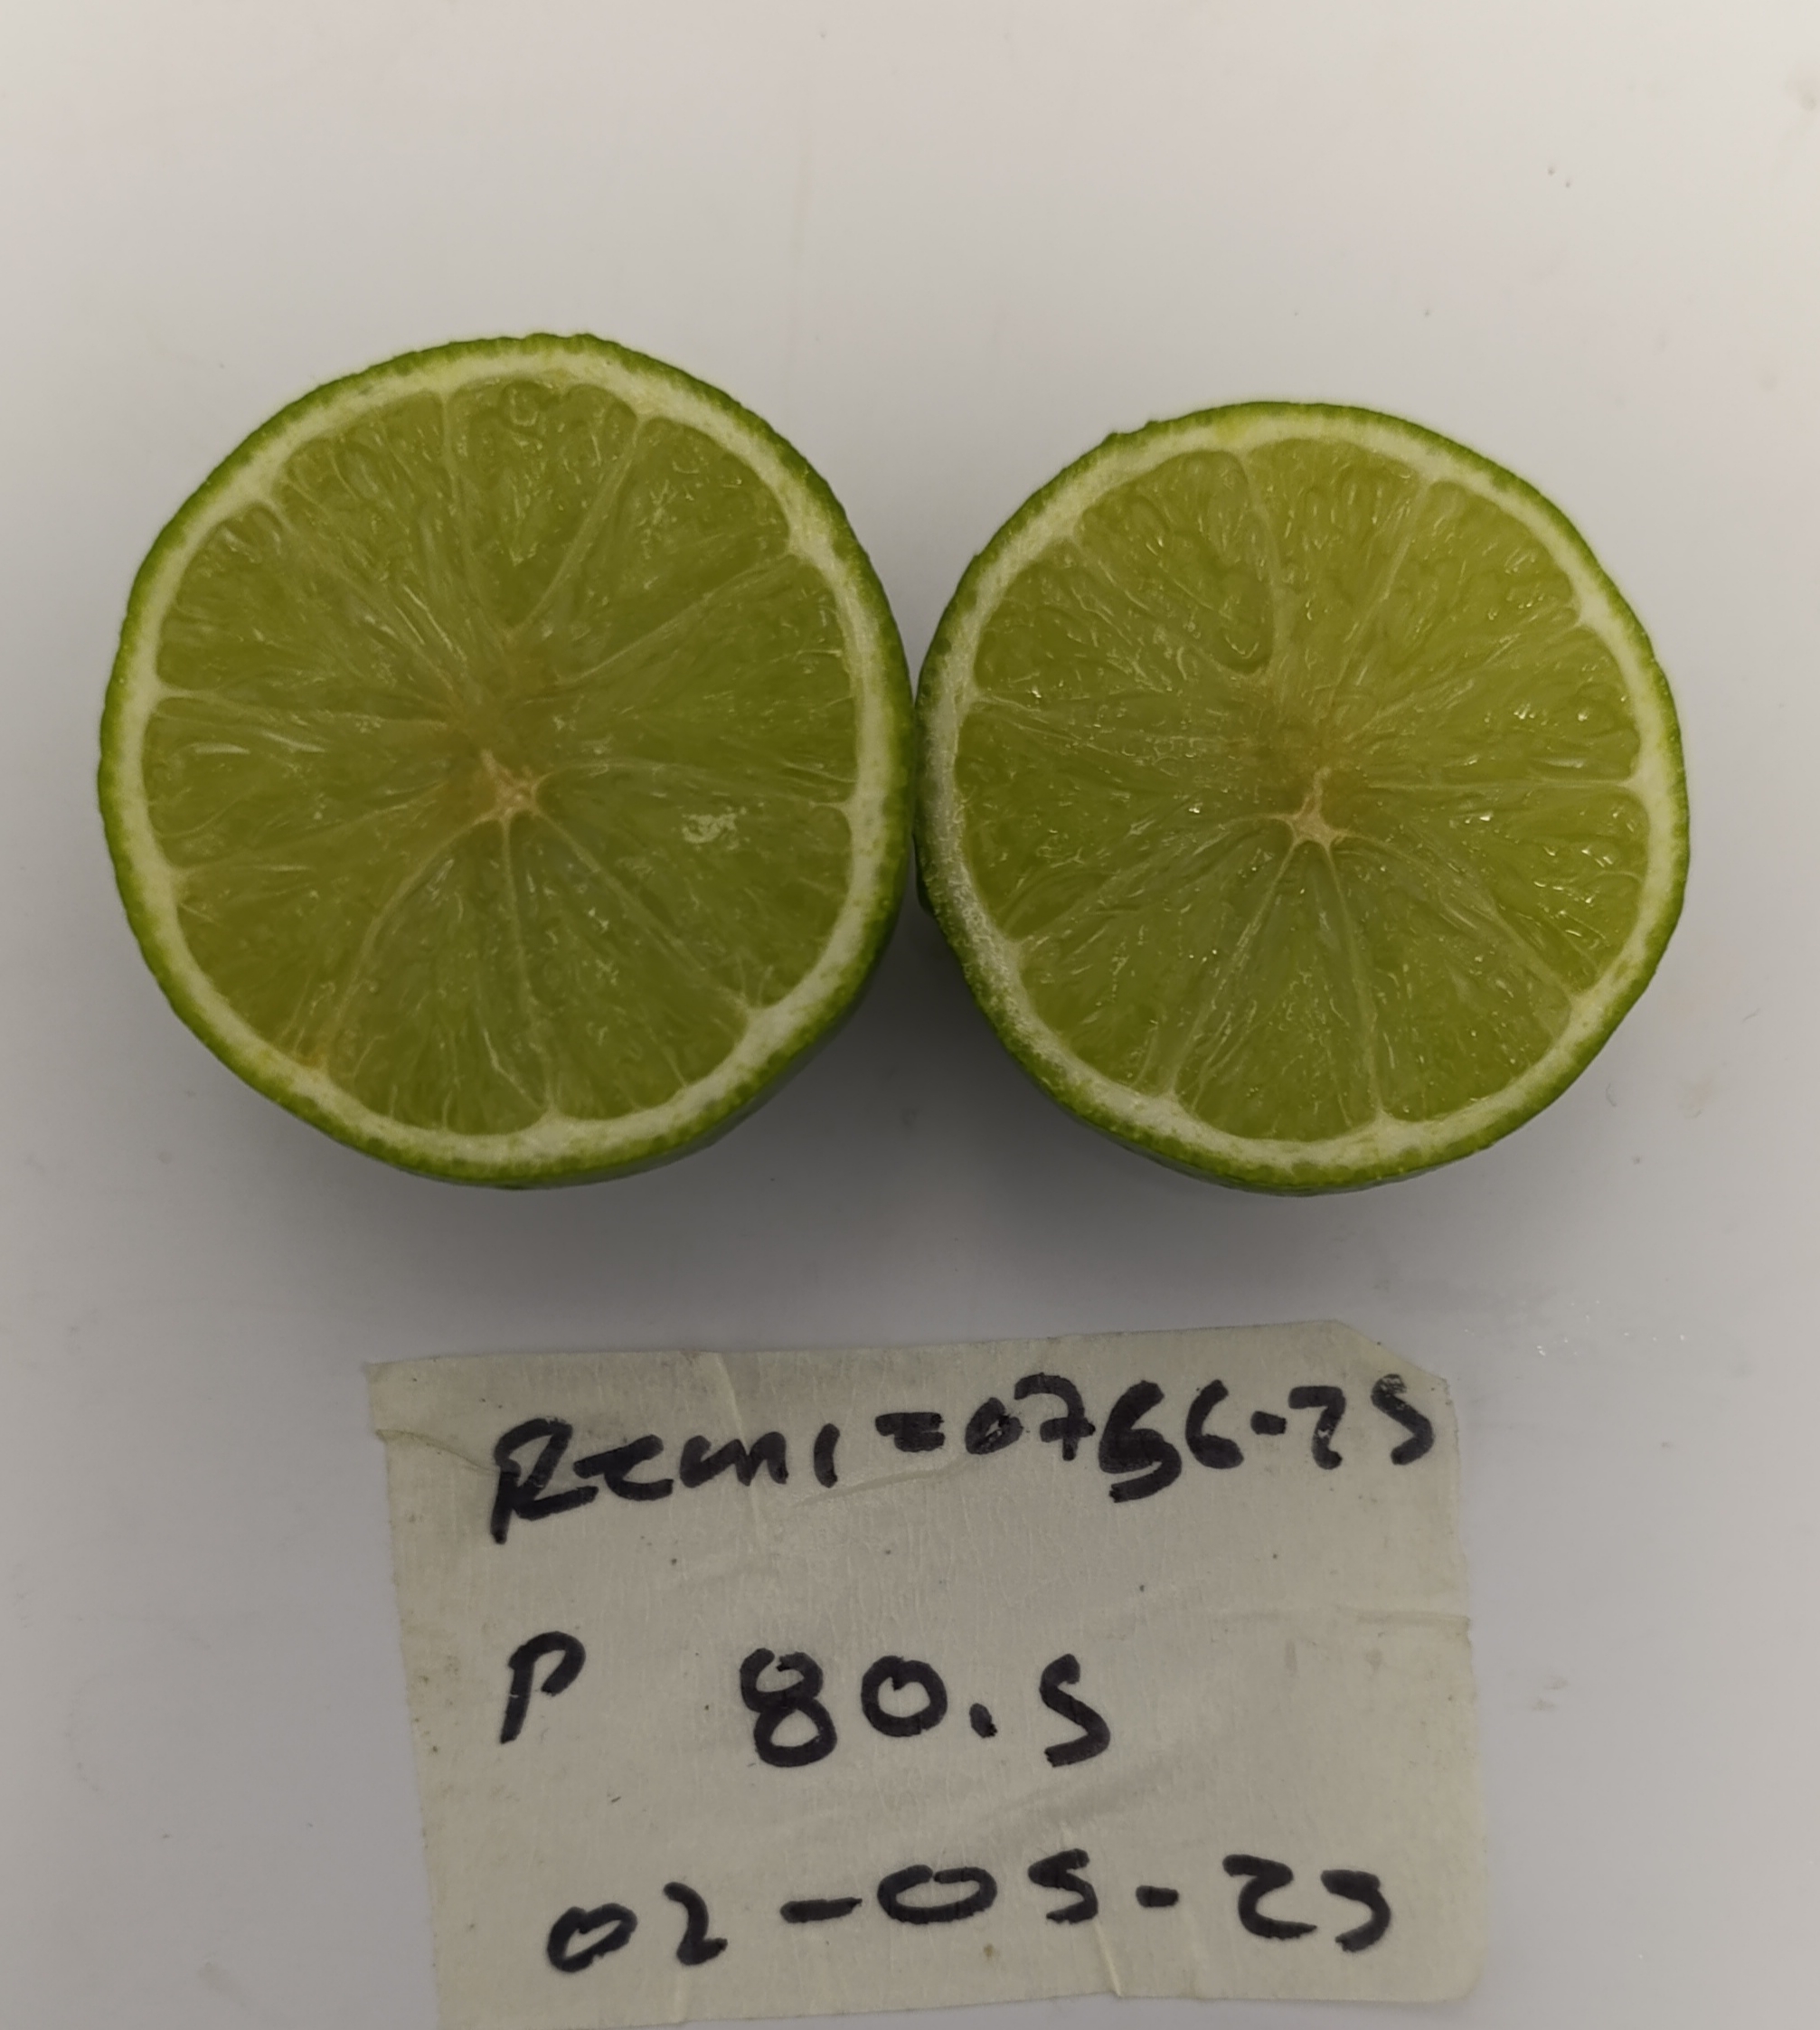 Remi=0756-25
P 80.5
02-05-25